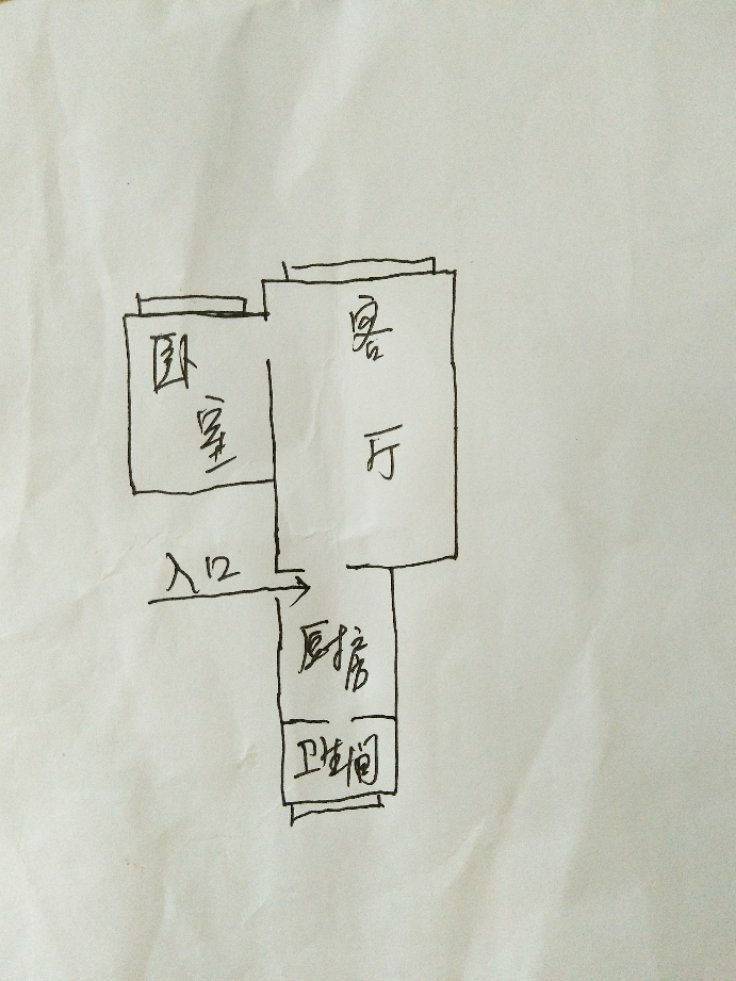 客厅
卧室
入口
厨房
卫生间